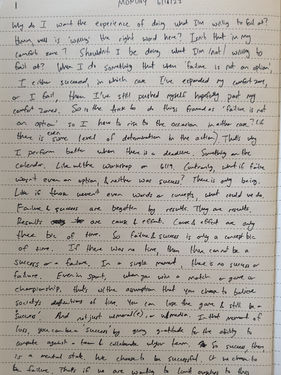 1 MONDAY 6/12/23
Why do I want the experience of doing what I'm willing to fail at?
Hmm, well is 'willing' the right word here? Isn't that in my
comfort zone? Shouldn't I be doing what I'm (not) willing to
fail at? When I do something that when 'failure is not an option',
I either succeed, in which case I've expanded my comfort zone,
or I fail, then I've still pushed myself hopefully past my
comfort zones. So is the trick to do things framed as 'failure is not
an option' so I have to rise to the occasion in either case? (if
there is even some level of determination in the action) That's why
I perform better when there is a deadline. Something on the
calendar. Like the workshop on 6/19. Contrarily, what if failure
wasn't even an option, & neither was success? There is only being.
Like if those weren't even words or concepts, what could we do.
Failure & success are begotten by results. They are results.
Results are cause & effect. Cause & effect are only
there bc of time. So failure & success is only a concept bc
of time. If there was no time, then there cannot be a
success or a failure. In a single moment there is no success or
failure. Even in sports, when you win a match or game or
championship, that's w/the assumption that you chose to believe
society's definitions of line. You can lose the game & still be a
success. And not just moral(s), or ultimately. In that moment of
loss, you can be a success by giving gratitude for the ability to
compete against a team & celebrate your team. So success then
is a mental state. We choose to be successful. Or we choose to
be failure. That's if we are wanting to limit ourselves to this